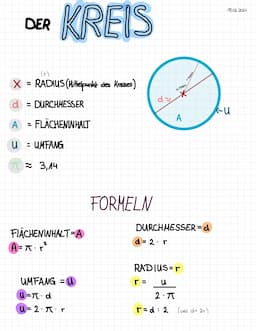 DER KREIS
(r)
X = RADIUS (Mittelpunkt des Kreises)
d = DURCHMESSER
A = FLÄCHENINHALT
U = UMFANG
π ≈ 3,14
d
X
A
U
FORMELN
FLÄCHENINHALT = A
A = π · r²
DURCHMESSER = d
d = 2 · r
UMFANG = U
U = π · d
U = 2 · π · r
RADIUS = r
r = U
2 · π
r = d : 2